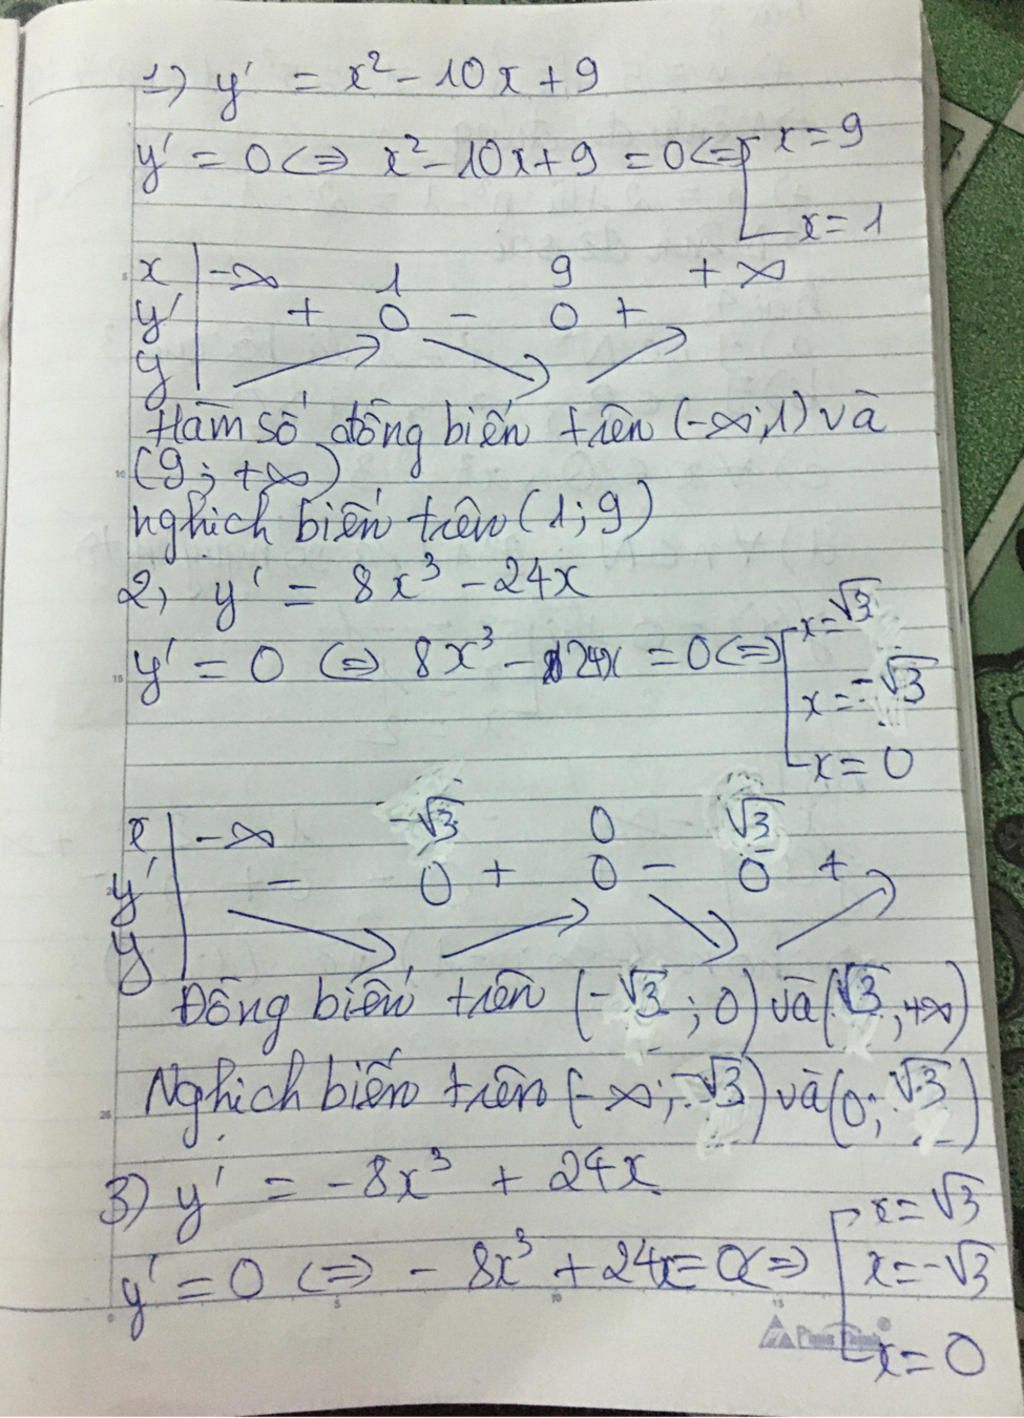 1) y' = x² - 10x + 9
y' = 0 <=> x² - 10x + 9 = 0 <=> [ x = 9
x = 1
x | -∞ 1 9 +∞
y' | + 0 - 0 +
y | ↗ ↘ ↗
Hàm số đồng biến trên (-∞;1) và
(9; +∞)
nghịch biến trên (1; 9)
2) y' = 8x³ - 24x
y' = 0 <=> 8x³ - 24x = 0 <=> [ x = √3
x = -√3
x = 0
x | -∞ -√3 0 √3
y' | - 0 + 0 - 0 +
y | ↘ ↗ ↘ ↗
Đồng biến trên (-√3; 0) và (√3; +∞)
Nghịch biến trên (-∞; -√3) và (0; √3)
3) y' = -8x³ + 24x
y' = 0 <=> - 8x³ + 24x = 0 <=> [ x = √3
x = -√3
x = 0